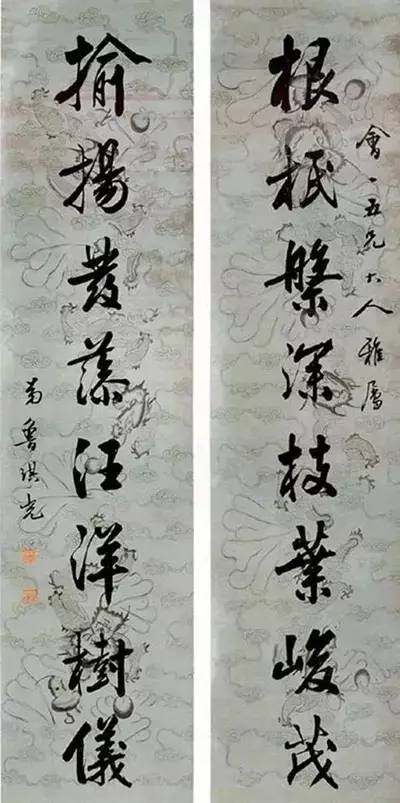 會一五兄大人雅屬
根柢槃深枝葉峻茂
揄揚發藻汪洋樹儀
魯琪光